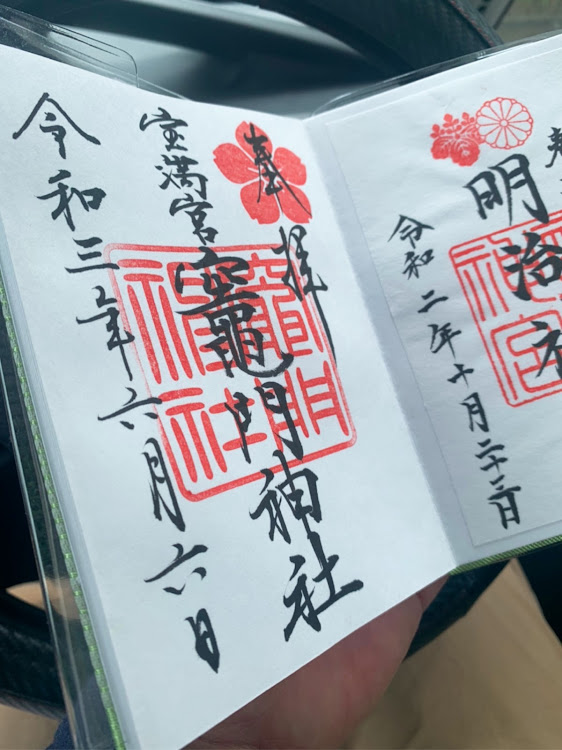 明治神
神宮
令和二年十月二十三日
奉拝
宝満宮
竈門神社
竈門
神社
令和三年六月六日